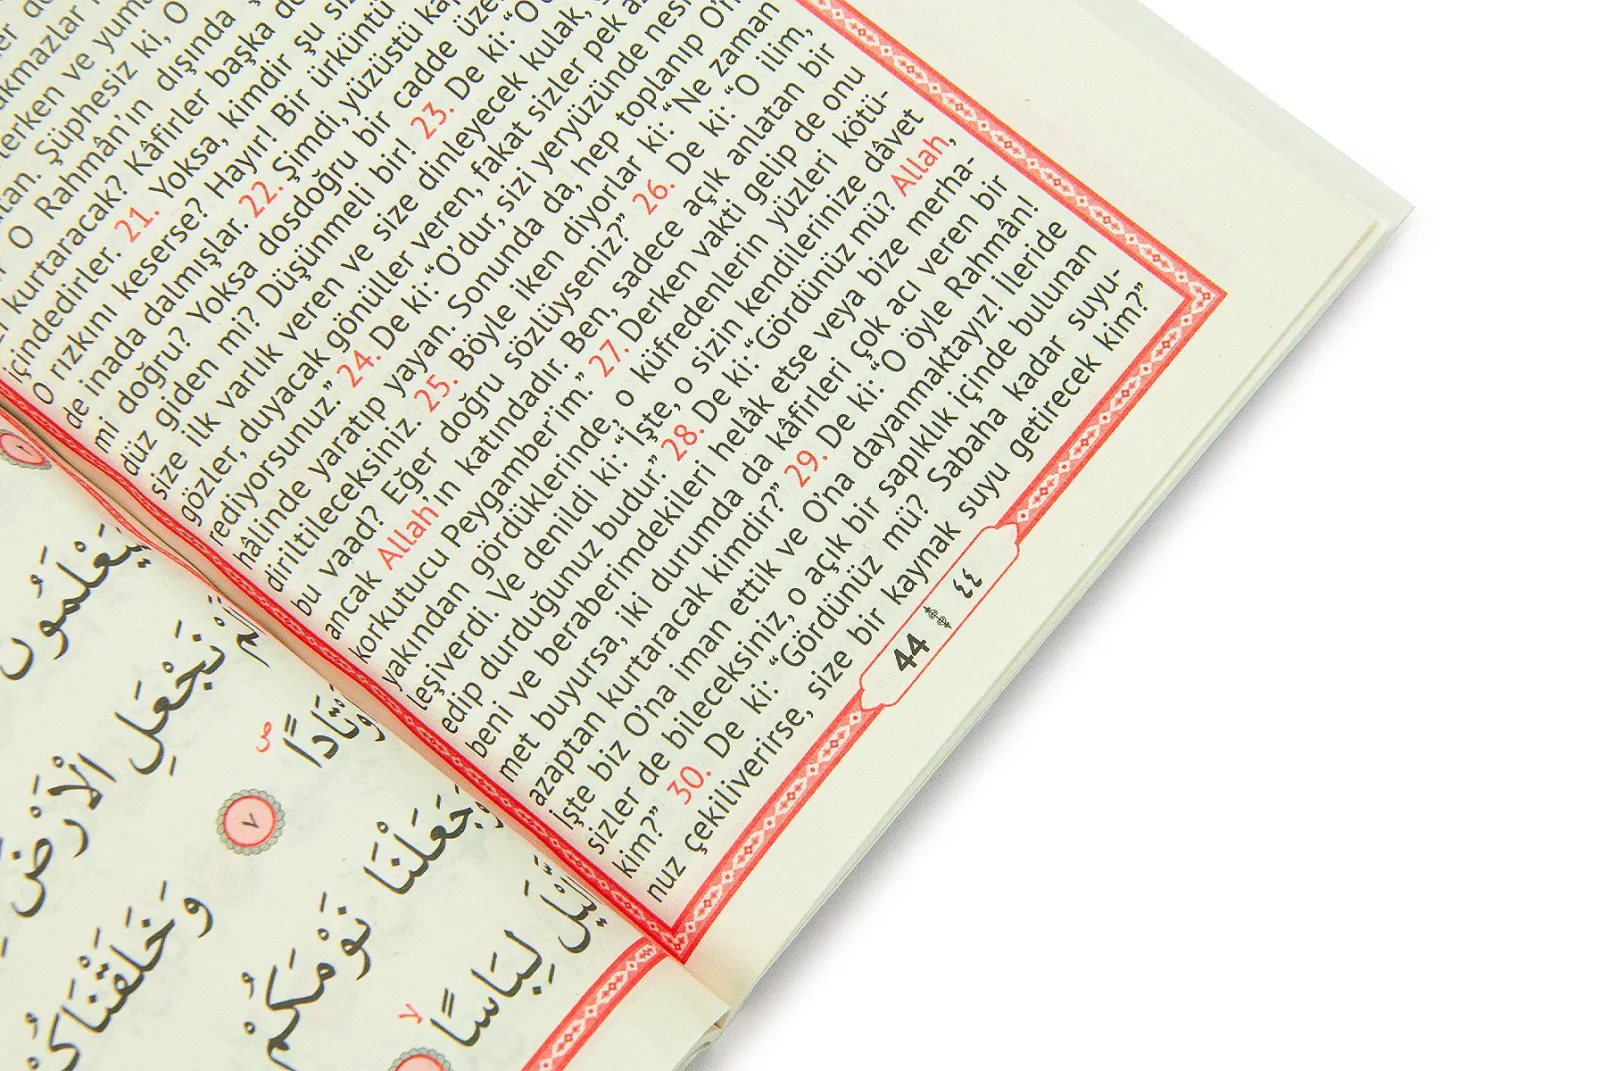 Şüphesiz ki, O
O Rahmân’ın dışında
kurtaracak? Kâfirler başka
içindedirler. 21. Yoksa, kimdir şu
O rızkını keserse? Hayır! Bir ürküntü
de inada dalmışlar. 22. Şimdi, yüzüstü
mi doğru? Yoksa dosdoğru bir cadde
düz giden mi? Düşünmeli bir! 23. De ki: “O
size ilk varlık veren ve size dinleyecek kulak,
gözler, duyacak gönüller veren, fakat sizler pek
rediyorsunuz.” 24. De ki: “O’dur, sizi yeryüzünde
hâlinde yaratıp yayan. Sonunda da, hep toplanıp
diriltileceksiniz. 25. Böyle iken diyorlar ki: “Ne zaman
bu vaad? Eğer doğru sözlüyseniz?” 26. De ki: “O ilim,
ancak Allah’ın katındadır. Ben, sadece açık anlatan bir
korkutucu Peygamber’im.” 27. Derken vakti gelip de onu
yakından gördüklerinde, o küfredenlerin yüzleri kötü-
leşiverdi. Ve denildi ki: “İşte, o sizin kendilerinize dâvet
edip durduğunuz budur.” 28. De ki: “Gördünüz mü? Allah,
beni ve beraberimdekileri helâk etse veya bize merha-
met buyursa, iki durumda da kâfirleri çok acı veren bir
azaptan kurtaracak kimdir?” 29. De ki: “O öyle Rahmân!
İşte biz O’na iman ettik ve O’na dayanmaktayız! İleride
sizler de bileceksiniz, o açık bir sapıklık içinde bulunan
kim?” 30. De ki: “Gördünüz mü? Sabaha kadar suyu-
nuz çekiliverirse, size bir kaynak suyu getirecek kim?”
44 ٤٤
سَيَعْلَمُونَ
نَجْعَلِ الْاَرْضَ
اَوْتَادًا ٧ وَخَلَقْنَاكُمْ
وَجَعَلْنَا نَوْمَكُمْ
الَّيْلَ لِبَاسًا